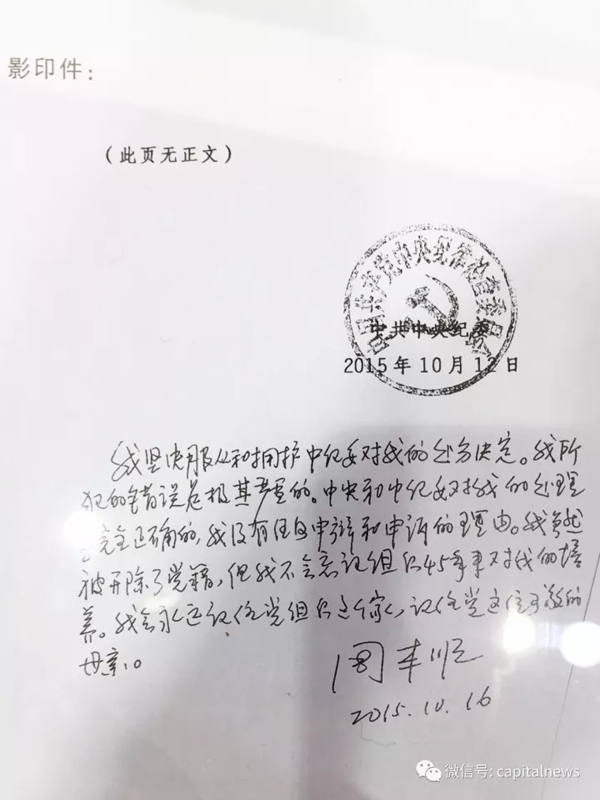 影印件：
（此页无正文）
中国共产党中央纪律检查委员会
中共中央纪委
2015年10月12日
我坚决服从和拥护中纪委对我的处分决定。我所
犯的错误是极其严重的。中央和中纪委对我的处理
是完全正确的，我没有任何申辩和申诉的理由。我虽然
被开除了党籍，但我不会忘记组织45年来对我的培
养。我会永远记住党组织这个家，记住党这位可敬的
母亲。
周本顺
2015.10.16
微信号: capitalnews